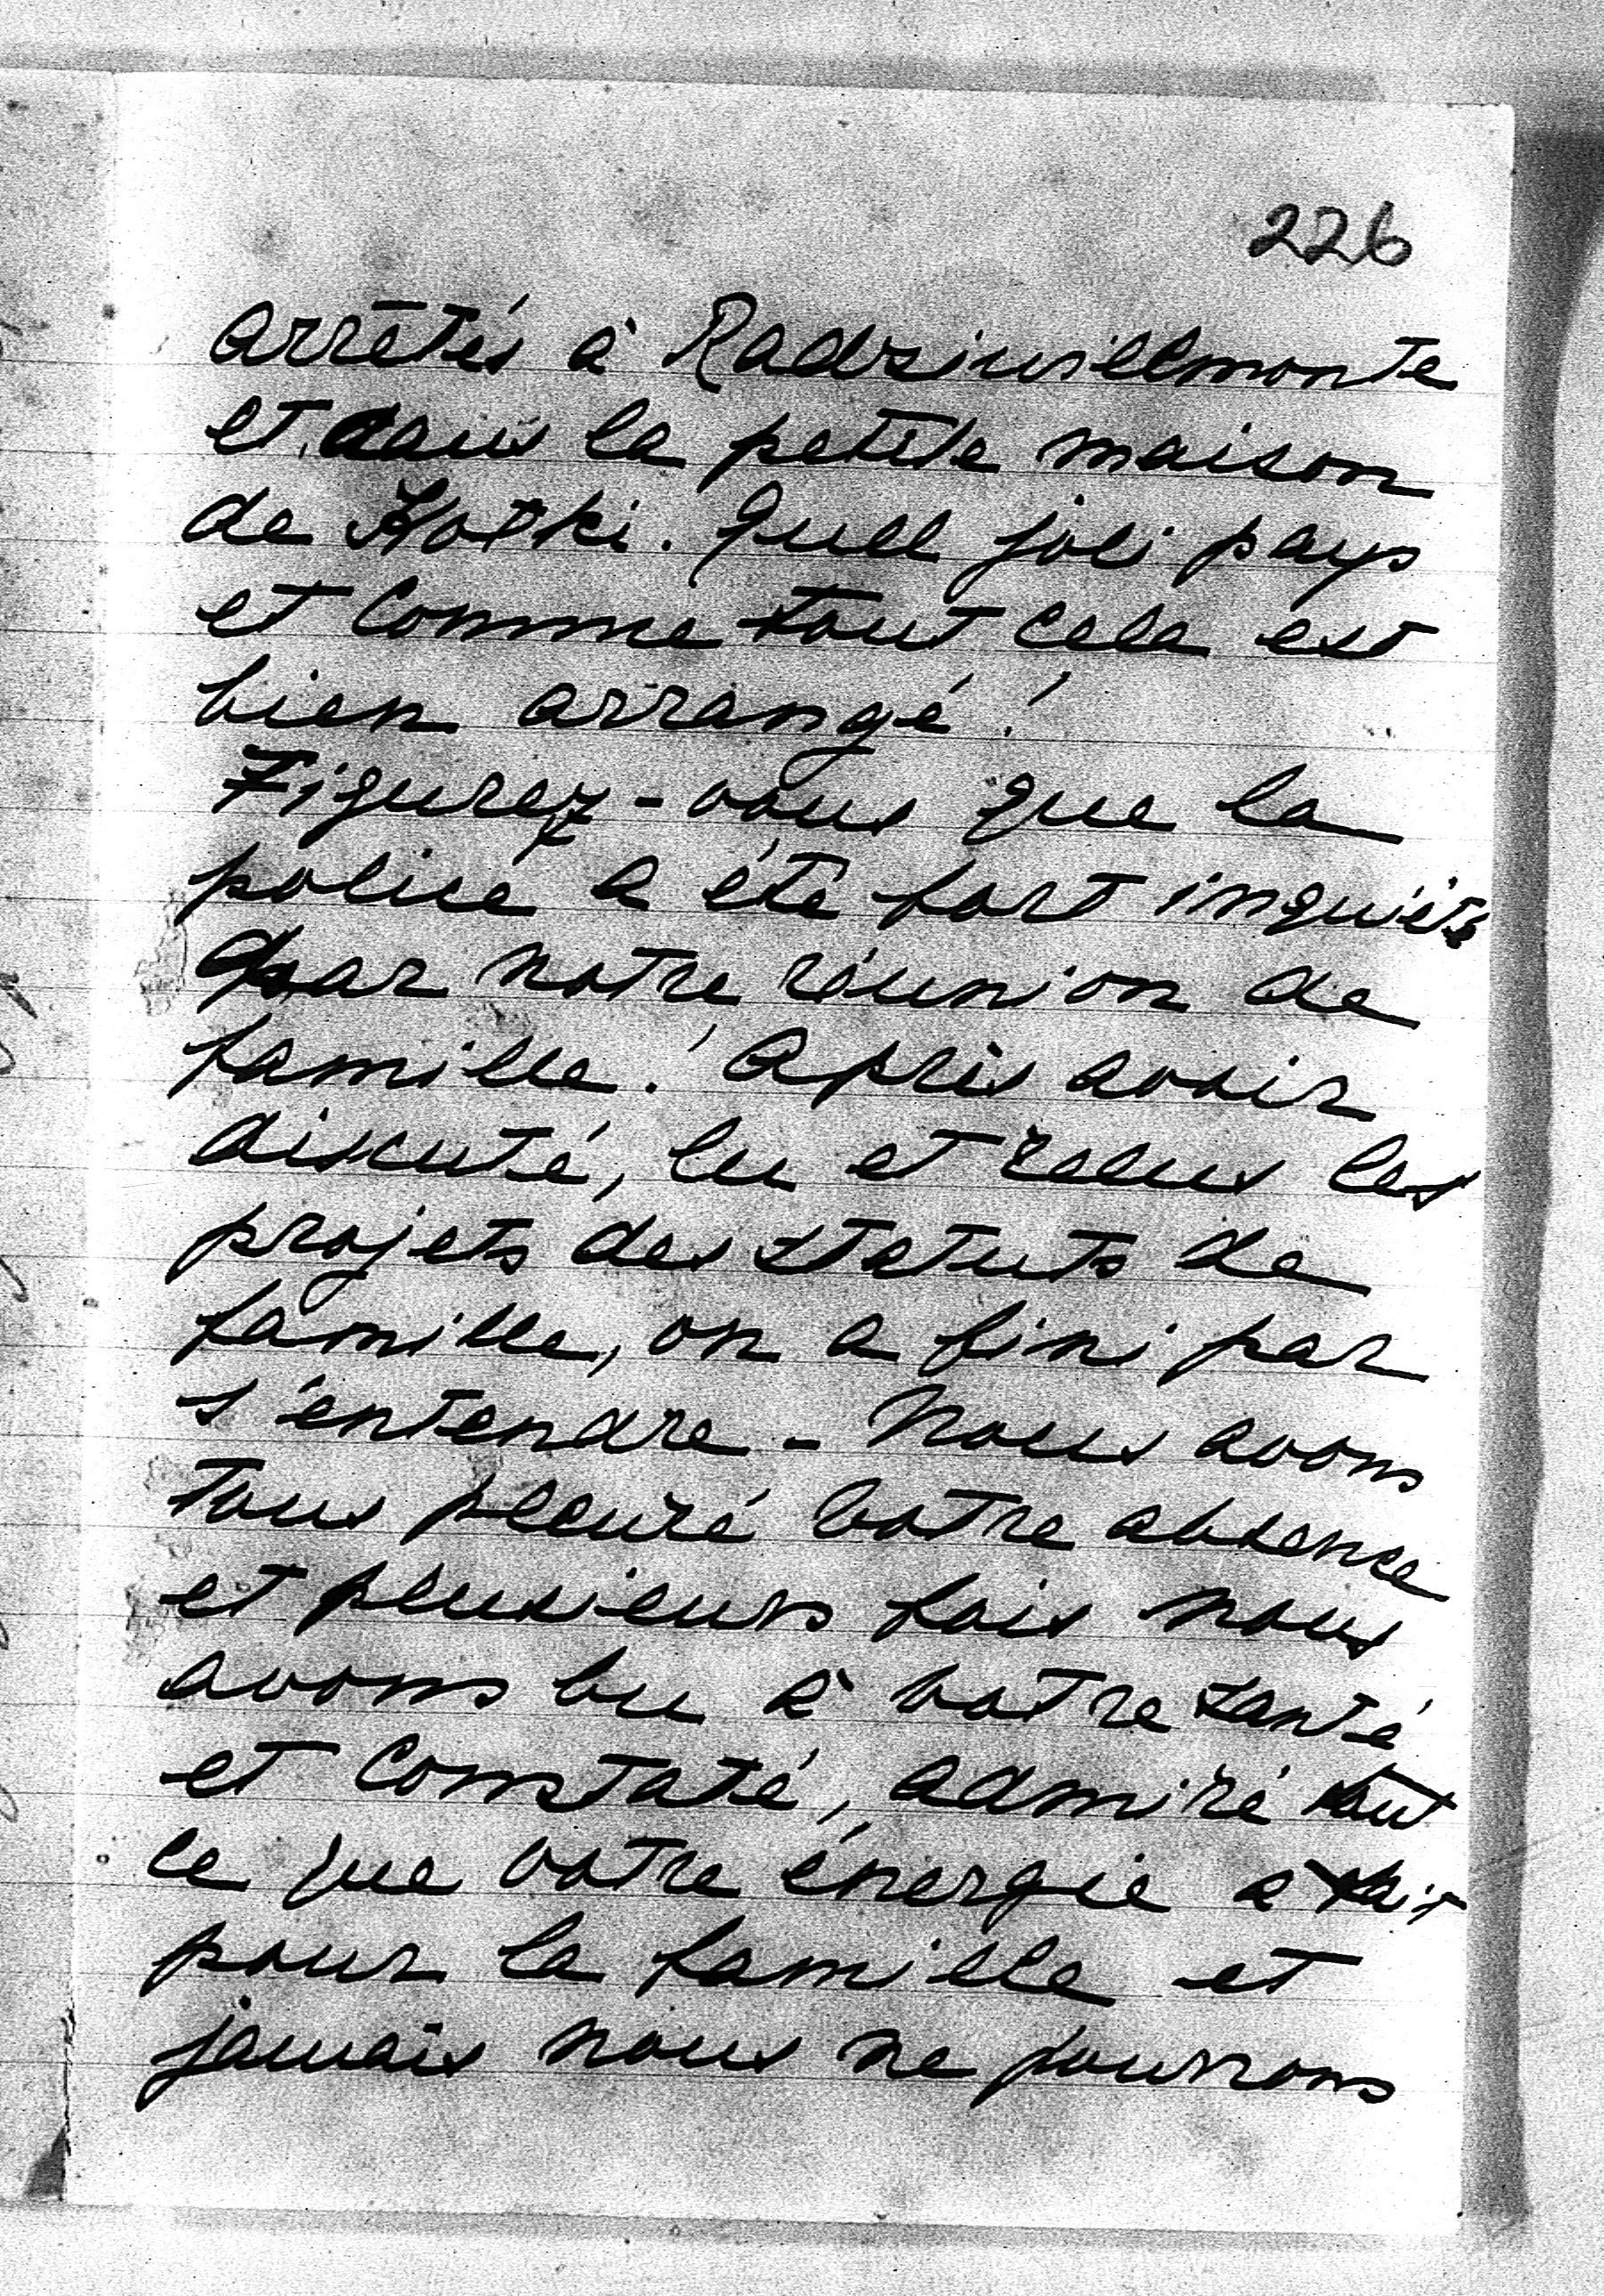 226
arrêtés à Radziwillmonte
et dans la petite maison
de Hotki. Quel joli pays
et comme tout cela est
bien arrangé !
Figurez-vous que la
police a été fort inquiète
par notre réunion de
famille ! Après avoir
discuté, lu et relus les
projets des statuts de
famille, on a fini par
s'entendre - Nous avons
tous pleuré votre absence
et plusieurs fois nous
avons bu à votre santé
et constaté, admiré tout
ce que votre énergie a fait
pour la famille et
jamais nous ne pourrons